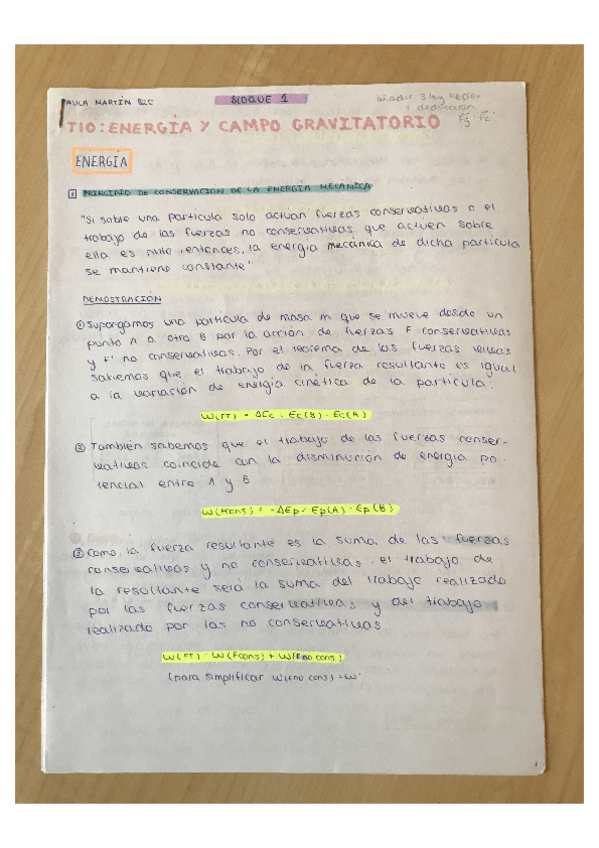 PAULA MARTÍN B2C
BLOQUE 1
añadir 3 ley Kepler
+ deducción
Fg Fc
T10: ENERGÍA Y CAMPO GRAVITATORIO
ENERGÍA
1 PRINCIPIO DE CONSERVACIÓN DE LA ENERGÍA MECÁNICA
"Si sobre una partícula solo actúan fuerzas conservativas o el
trabajo de las fuerzas no conservativas que actúen sobre
ella es nulo, entonces, la energía mecánica de dicha partícula
se mantiene constante"
DEMOSTRACIÓN
① Supongamos una partícula de masa m que se mueve desde un
punto A a otro B por la acción de fuerzas F conservativas
y F' no conservativas. Por el teorema de las fuerzas vivas
sabemos que el trabajo de la fuerza resultante es igual
a la variación de energía cinética de la partícula:
W(FT) = ΔEc = Ec(B) - Ec(A)
② También sabemos que el trabajo de las fuerzas conser-
vativas coincide con la disminución de energía po-
tencial entre A y B
W(Fcons) = -ΔEp = Ep(A) - Ep(B)
③ Como la fuerza resultante es la suma de las fuerzas
conservativas y no conservativas, el trabajo de
la resultante será la suma del trabajo realizado
por las fuerzas conservativas y del trabajo
realizado por las no conservativas.
W(FT) = W(Fcons) + W(Fno cons)
(para simplificar W(Fno cons) = W'
1